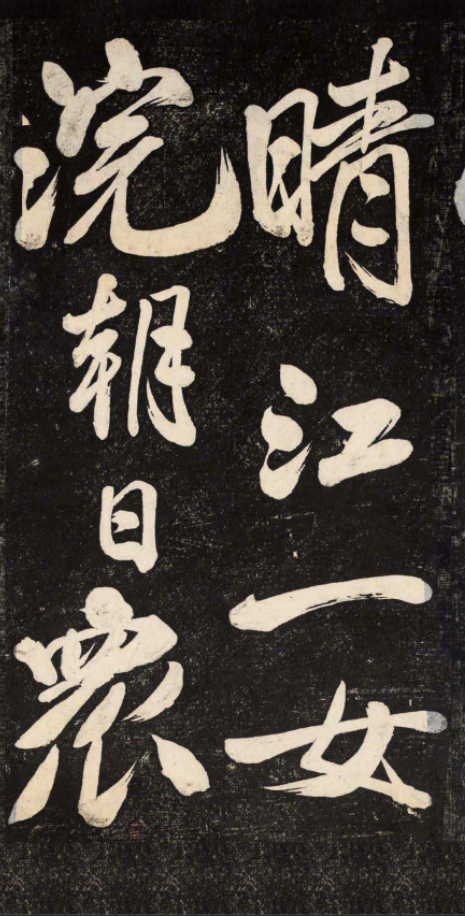 晴江一女
浣朝日衆